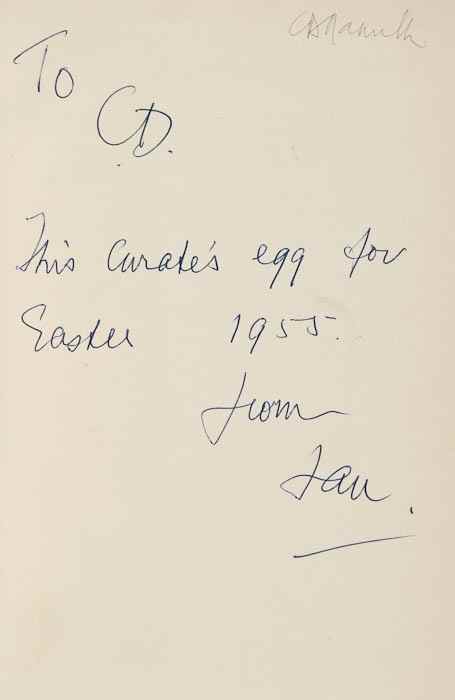 To
C.D.
This Curate's egg for
Easter 1955.
from
Ian.